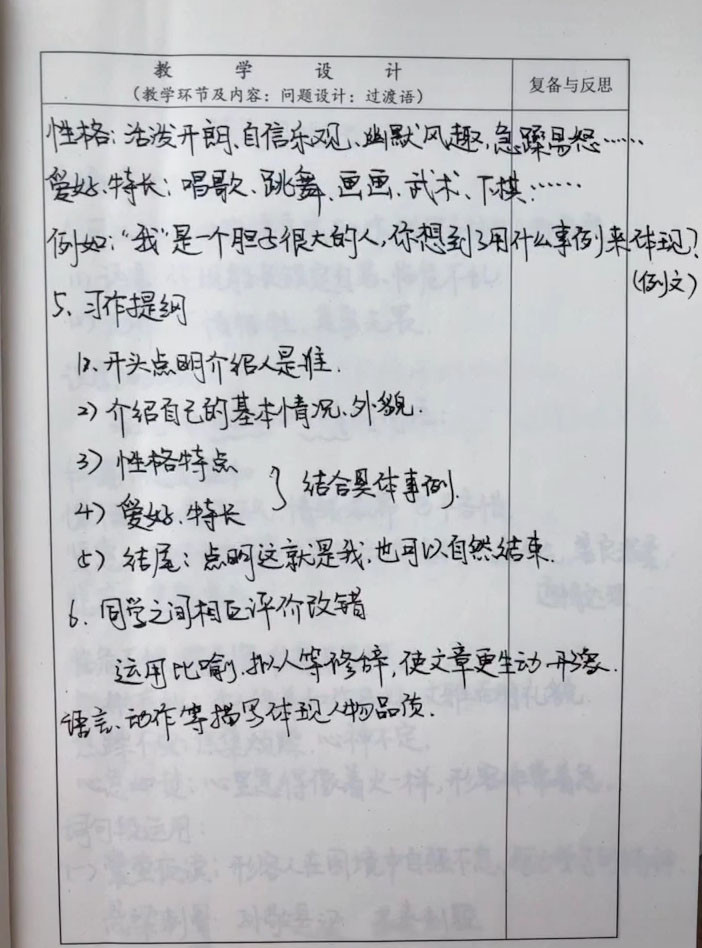 教 学 设 计
（教学环节及内容：问题设计：过渡语）
复备与反思
性格：活泼开朗、自信乐观、幽默风趣，急躁易怒……
爱好、特长：唱歌、跳舞、画画、武术、下棋……
例如：“我”是一个胆子很大的人，你想到了用什么事例来体现？
（例文）
5、习作提纲
1）、开头点明介绍人是谁.
2）介绍自己的基本情况、外貌.
3）性格特点
4）爱好、特长 } 结合具体事例.
5）结尾：点明这就是我，也可以自然结束.
6、同学之间相互评价改错
运用比喻、拟人等修辞，使文章更生动形象.
语言、动作等描写体现人物品质.